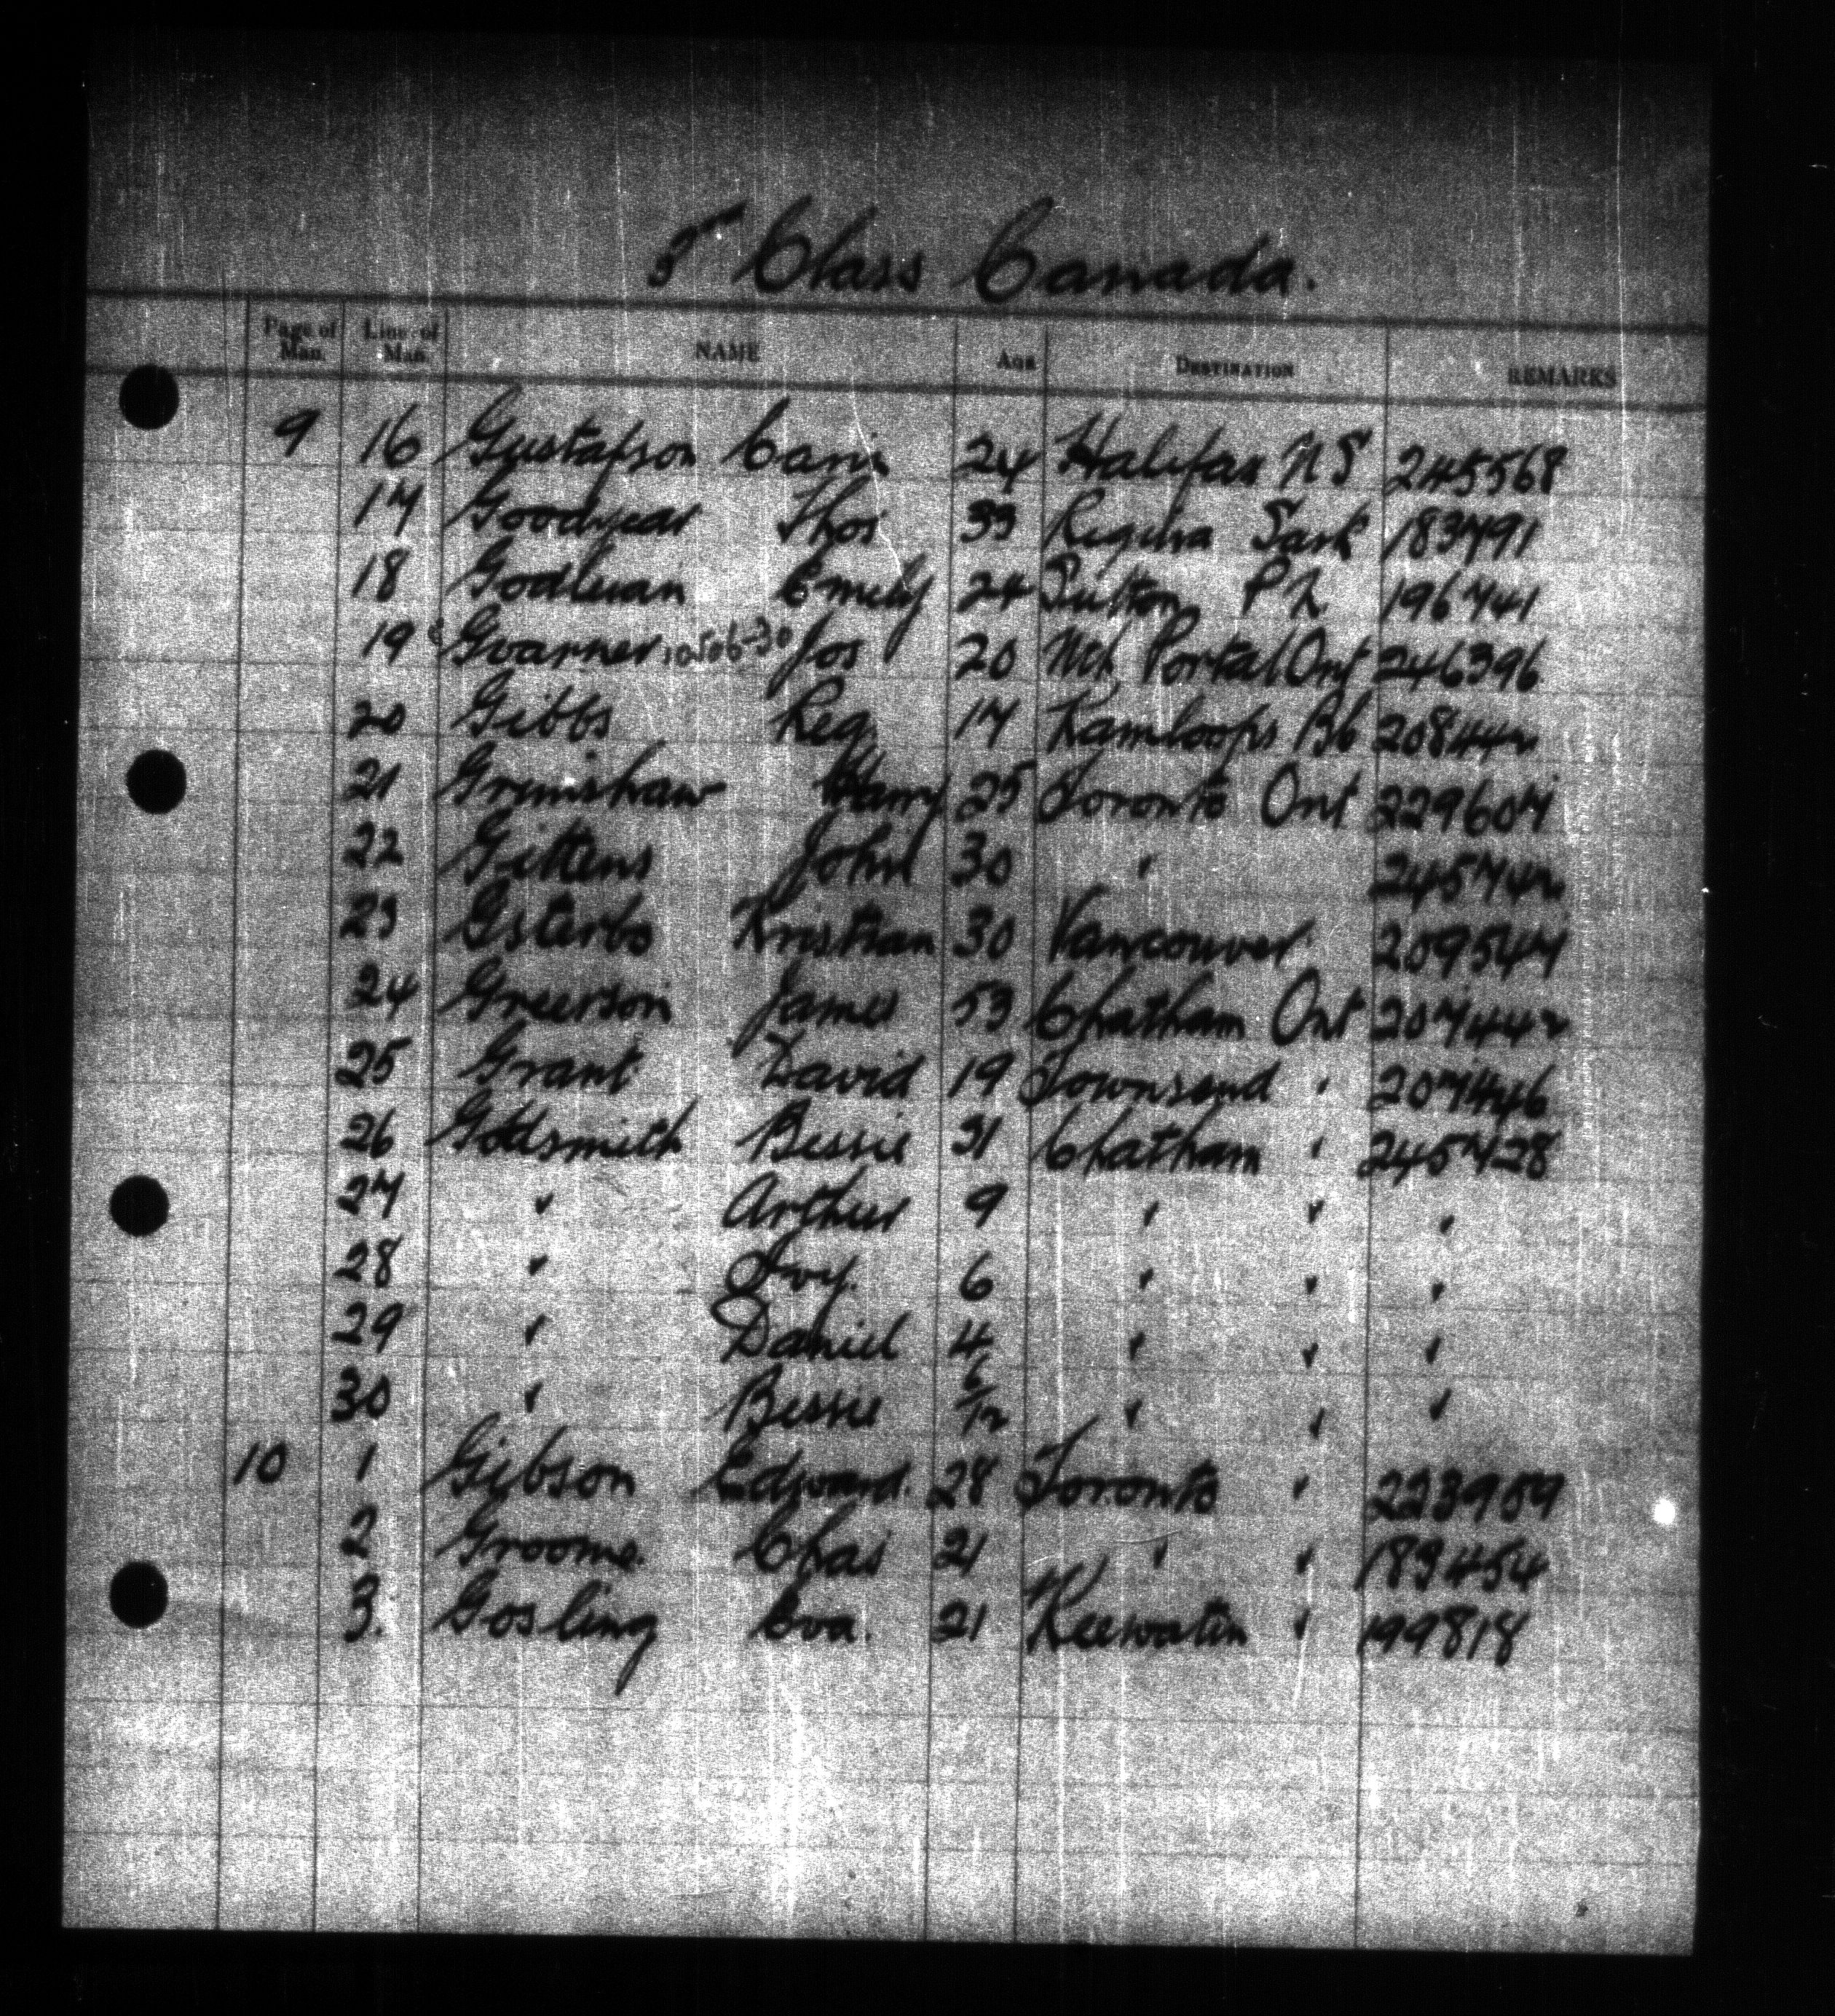 3 Class Canada.
Page of Man. Line of Man. NAME AGE DESTINATION REMARKS
9 16 Gustafson Carin 24 Halifax NS 245568
17 Goodyear Thos 33 Regina Sask 183791
18 Godluan Emely 24 P.Q. 196741
19 Gvarner 10506-30 Jos 20 Nth Portal Ont 246396
20 Gibbs Reg. 17 Kamloops BC 208442
21 Grimshaw Harry 25 Toronto Ont 229607
22 Gittens John 30 " 245742
23 Gsterbo Kristian 30 Vancouver 209547
24 Greerson James 53 Chatham Ont 207442
25 Grant David 19 Townsend " 207446
26 Goldsmith Bessie 31 Chatham " 245728
27 " Arthur 9 " " "
28 " Ivy. 6 " " "
29 " Daniel 4 " " "
30 " Bessie 6/12 " " "
10 1 Gibson Edward. 28 Toronto " 223959
2 Groome. Chas 21 " " 183454
3. Gosling Eva. 21 Keewatin " 199818